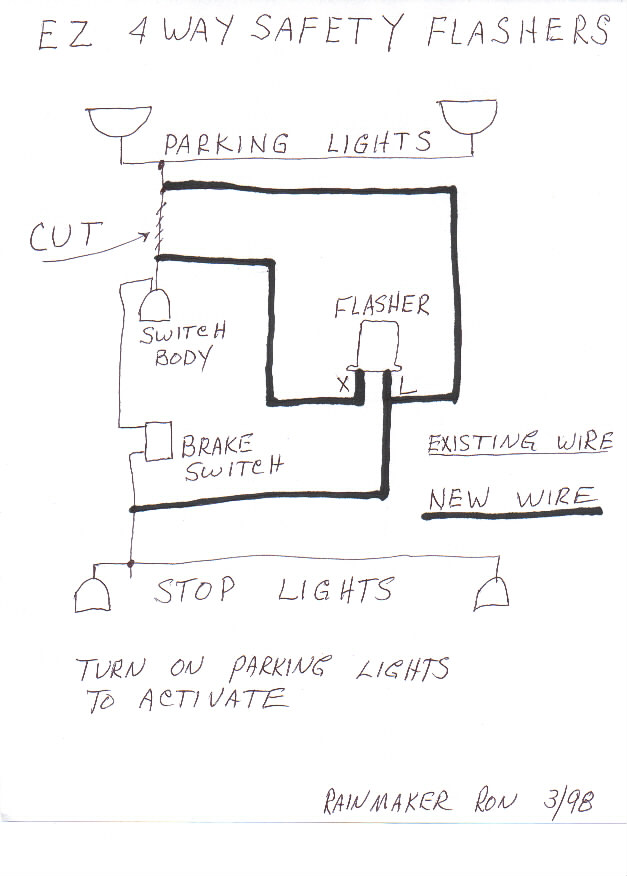 EZ 4 WAY SAFETY FLASHERS
PARKING LIGHTS
CUT
FLASHER
SWITCH
BODY
X L
BRAKE
SWITCH
EXISTING WIRE
NEW WIRE
STOP LIGHTS
TURN ON PARKING LIGHTS
TO ACTIVATE
RAINMAKER RON 3/98